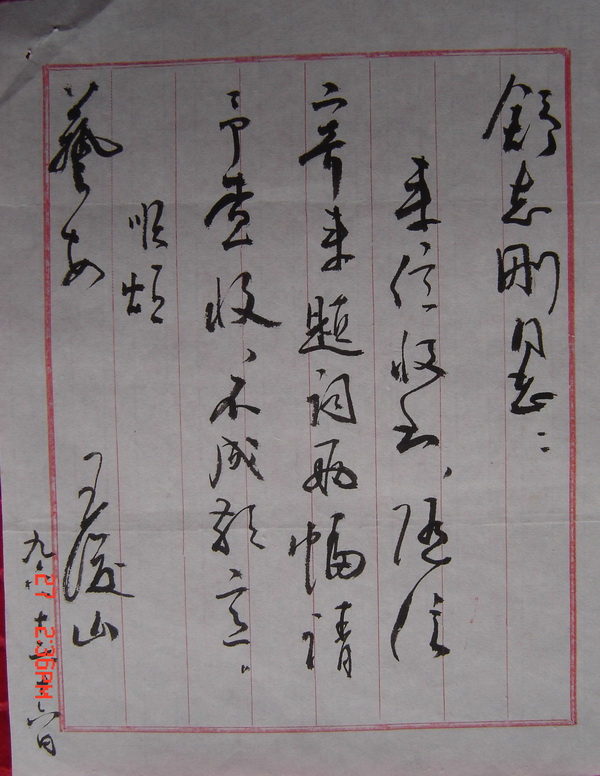 舒志刚同志：
来信收、随信
寄来题词两幅请
予查收、不成敬意。
顺颂
藝安
王山
九 十二 六日
27 2:36PM